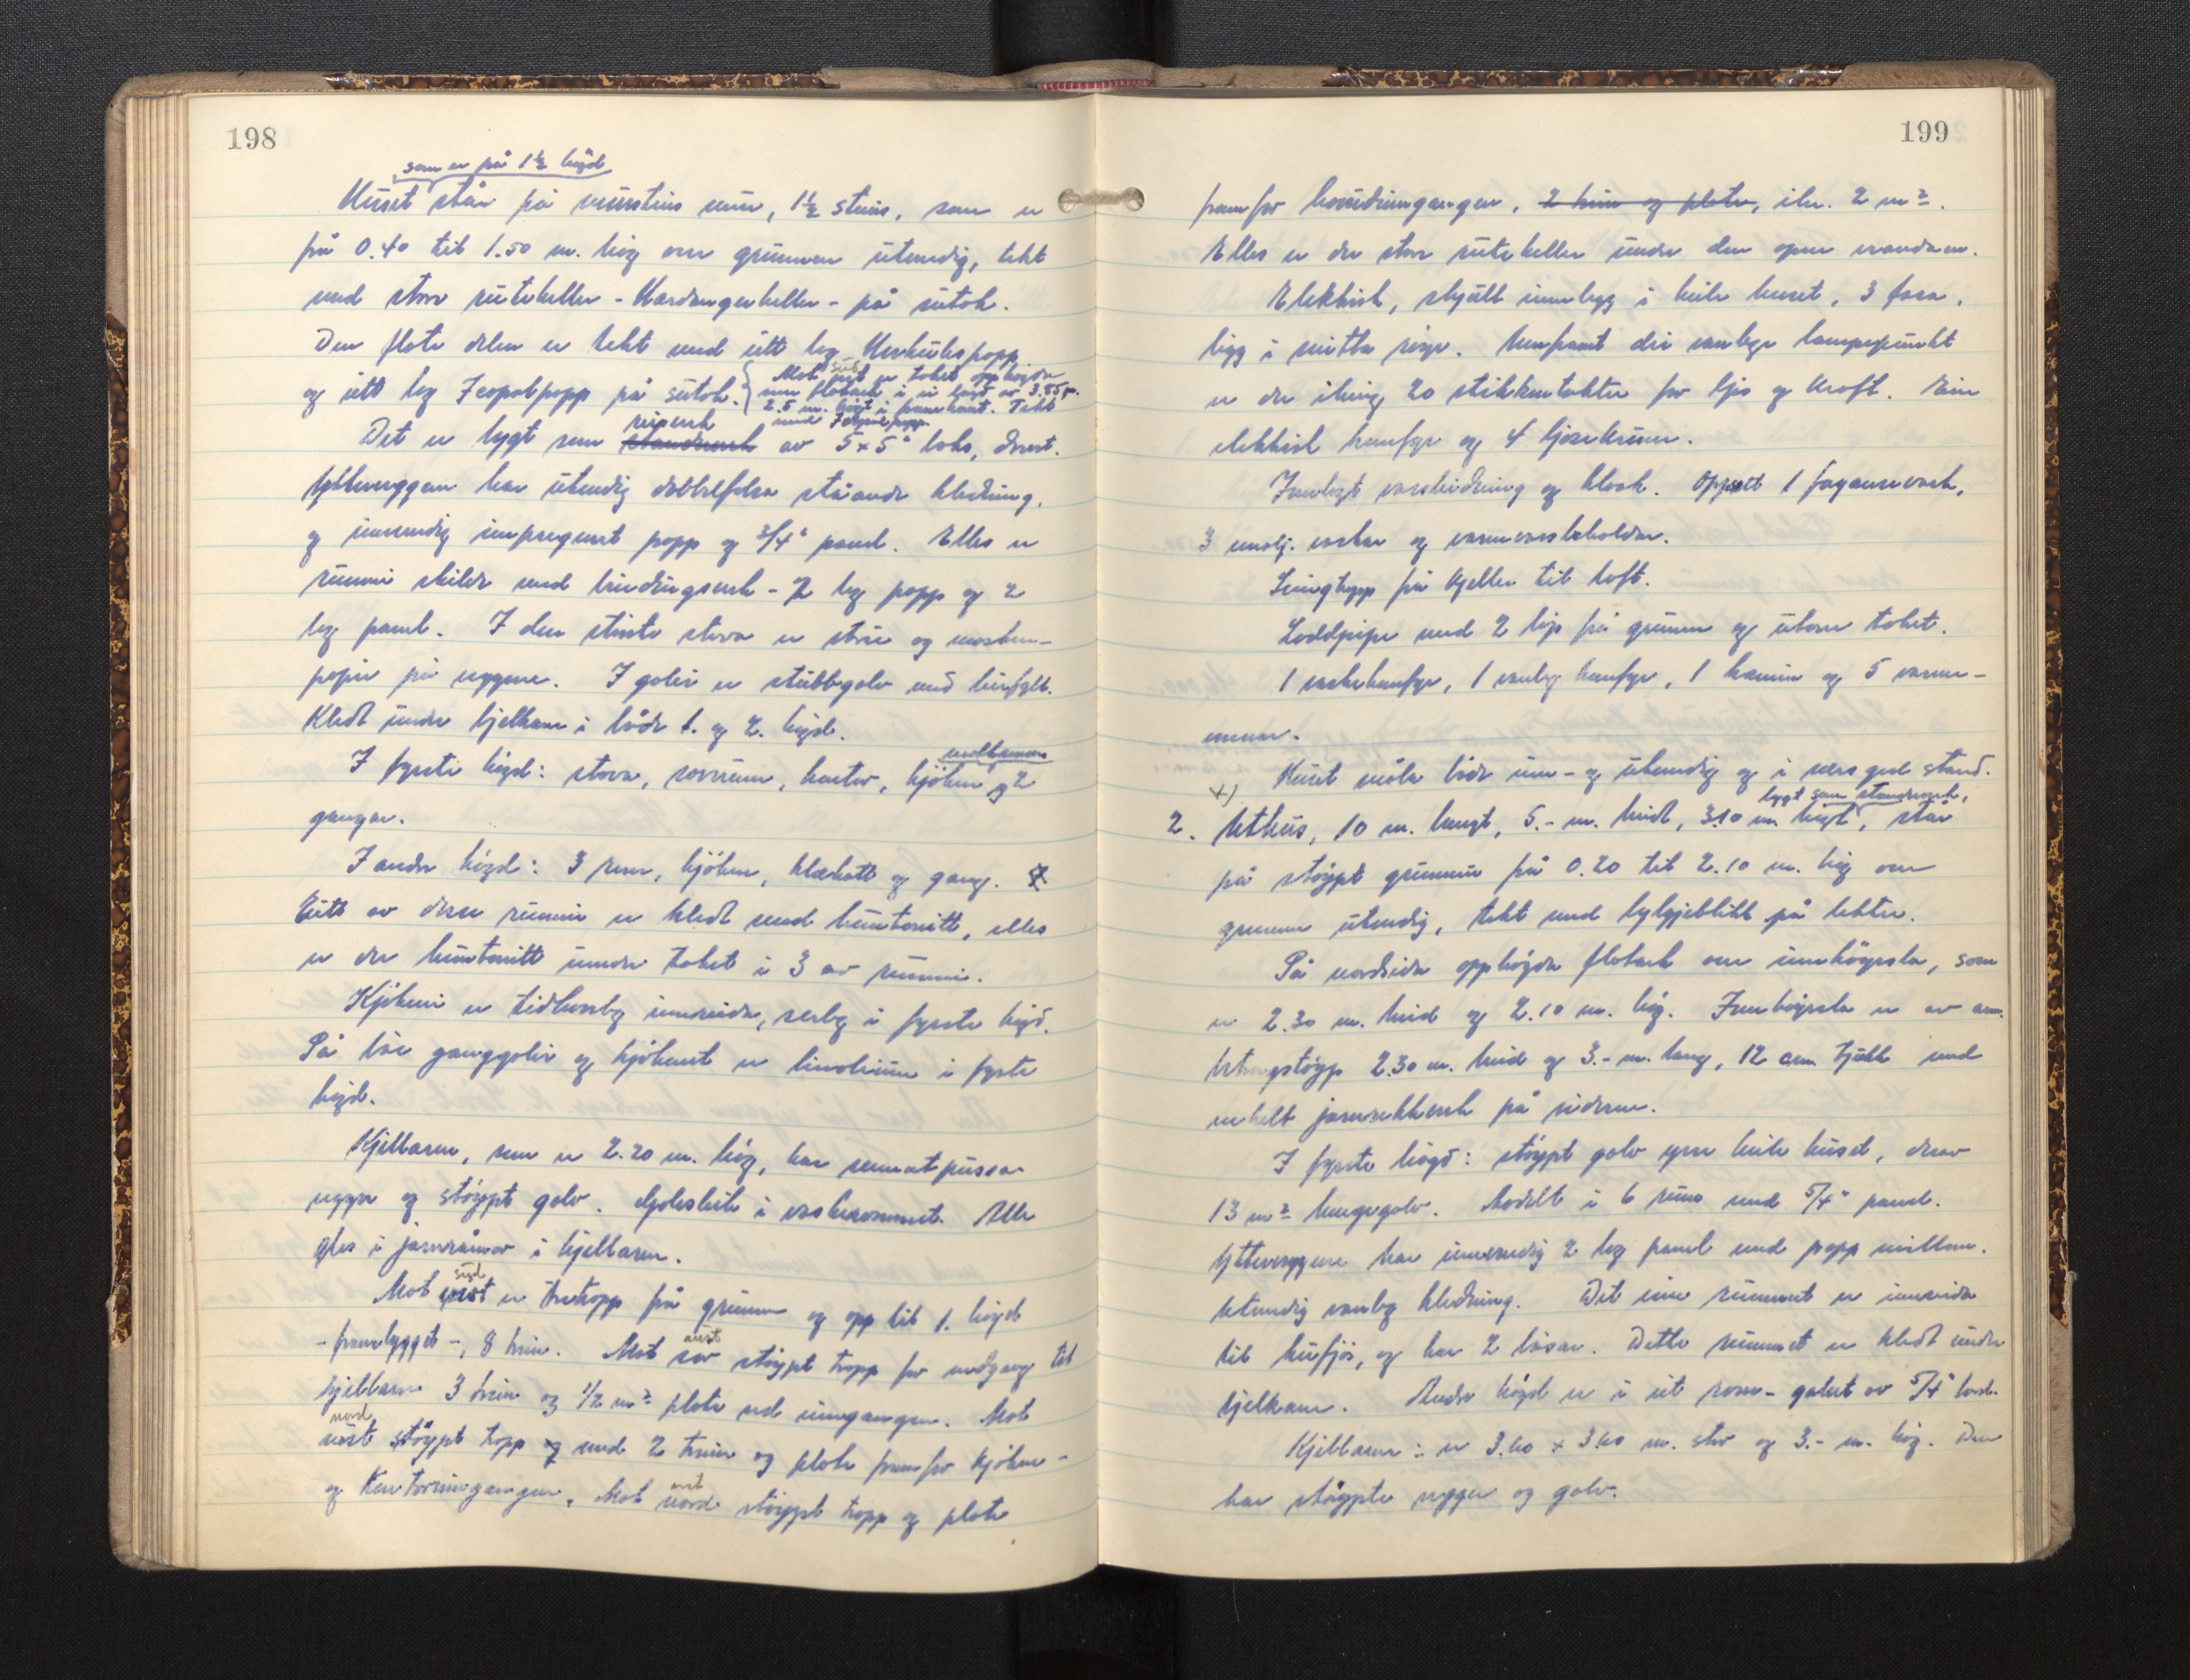 198
som er på 1½ høgd
Huset står på murstins mur, 1½ steins, som er
frå 0.40 til 1.50 m. høg over grunnen utvendig, tekt
med store ruteheller - Hardangerheller - på sutak.
Den flate delen er tekt med eitt lag Herkulespapp
og eitt lag Icopalpapp på sutak. Mot syd er taket opphøgda
med flatark i ei lengd av 3.85 m.
2.5 m. høgt i framkant. Tekt
med papp.
Det er bygt som reisverk standverk av 5 x 5" laks, drevt.
Ytterveggen har utvendig dobbelfalsa ståande kledning,
og innvendig impregnert papp og 3/4" panel. Elles er
rummi skilde med bindingsverk - 2 lag papp og 2
lag panel. I den største stova er strie og maskin-
papir på veggene. I golvi er stubbegolv med leirfyll.
Kledt under bjelkane i både 1. og 2. høgd.
I fyrste høgd: stova, soverum, kontor, kjøken og 2
gangar.
I andre høgd: 3 rom, kjøken, klekott og gang.
Eitt av desse rummi er kledt med huntonitt, elles
er der huntonitt under taket i 3 av rummi.
Kjøkeni er tidhøveleg innreidde, serleg i fyrste høgd.
På båe ganggolvi og kjøkenet er linolium i fyrste
høgd.
Kjellaren, som er 2.20 m. høg, har sementpussa
vegger og støypt golv. Golvsluk i vaskerommet. Alle
glas i jarnråmor i kjellaren.
syd
Mot vest er tretropp frå grunnen og opp til 1. høgd
- frambygget -, 8 trin. Mot aust sør støypt tropp for nedgang til
kjellaren 3 trin og 1/2 m² plate ved inngangen. Mot
nord
vest støypt tropp og med 2 trin og plate framfor kjøken-
og kontorinngangen. Mot vest nord støypt tropp og plate
199
framfor hovudinngangen, 2 trin og plate, ikr. 2 m².
Elles er der store rutehellor under den opne verandaen.
Elektrisk, skjult innlegg i heile huset, 3 fasa,
ligg i røyr. Umframt dei vanlege lampepunkt
er der ikring 20 stikkontakter for ljos og kraft. Ein
elektrisk komfyr og 4 ljosekruner.
Innlagt vassleidning og kloak. Oppsett 1 fayansevask,
3 emalj. vaskar og varmvassbeholdar.
Svingtrapp frå kjeller til loft.
Loddpipe med 2 løp frå grunnen og utover taket.
1 vaskekomfyr, 1 vanleg komfyr, 1 kamin og 5 varme-
omnar.
Huset måla både inn- og utvendig og i sers god stand.
x)
bygt som standverk,
2. Uthus, 10 m. langt, 5.- m. breidt, 3.10 m. høgt, står
på støypt grunnmur frå 0.20 til 2.10 m. høg over
grunnen utvendig, tekt med bylgjeblikk på lekter.
På nordsida opphøgda flatark over innkøyrsla, som
er 2.30 m. breid og 2.10 m. høg. Innkøyrsla er av arm.
betongstøyp 2.30 m. breid og 3.- m. lang, 12 cm. tjukk med
enkelt jarnrekkverk på sidorne.
I fyrste høgd: støypt golv yver heile huset, derav
13 m² hengegolv. Avdelt i 6 rums med 5/4" panel.
Ytterveggene har innvendig 2 lag panel med papp millom.
Utvendig vanleg kledning. Det eine rummet er innreidd
til kufjøs, og har 2 båsar. Dette rummet er kledt under
bjelkane. Andre høgd er i eit rom - golvet av 5/4" bord.
Kjellaren: er 3.60 x 3.60 m. stor og 3.- m. høg. Den
har støypte vegger og golv.